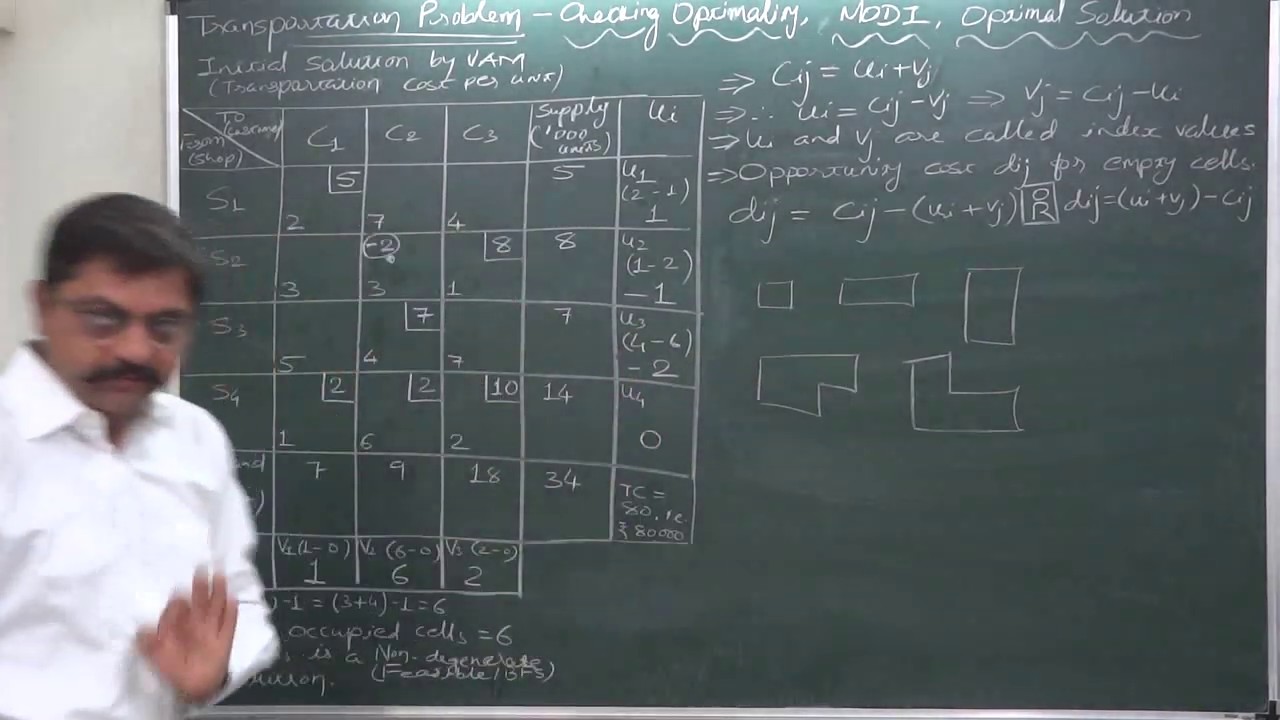 Transportation Problem - Checking Optimality, MODI, Optimal Solution
Initial Solution by VAM
(Transportation cost per unit)
To (customer) From (Shop) C1 C2 C3 Supply ('000 units) ui
S1 5 5 u1 (2-1)
2 7 4 1
S2 -2 8 8 u2 (1-2)
3 3 1 -1
S3 7 7 u3 (4-6)
5 4 7 -2
S4 2 2 10 14 u4
1 6 2 0
7 9 18 34 TC = 80, i.e. ₹ 80000
V1 (1-0) V2 (6-0) V3 (2-0)
1 6 2
)-1 = (3+4)-1 = 6
occupied cells = 6
is a Non-degenerate
(Feasible/BFS)
⇒ Cij = ui + vj
⇒ ∴ ui = cij - vj ⇒ vj = cij - ui
⇒ ui and vj are called index values
⇒ Opportunity cost dij for empty cells.
dij = Cij - (ui + vj) OR dij = (ui + vj) - cij